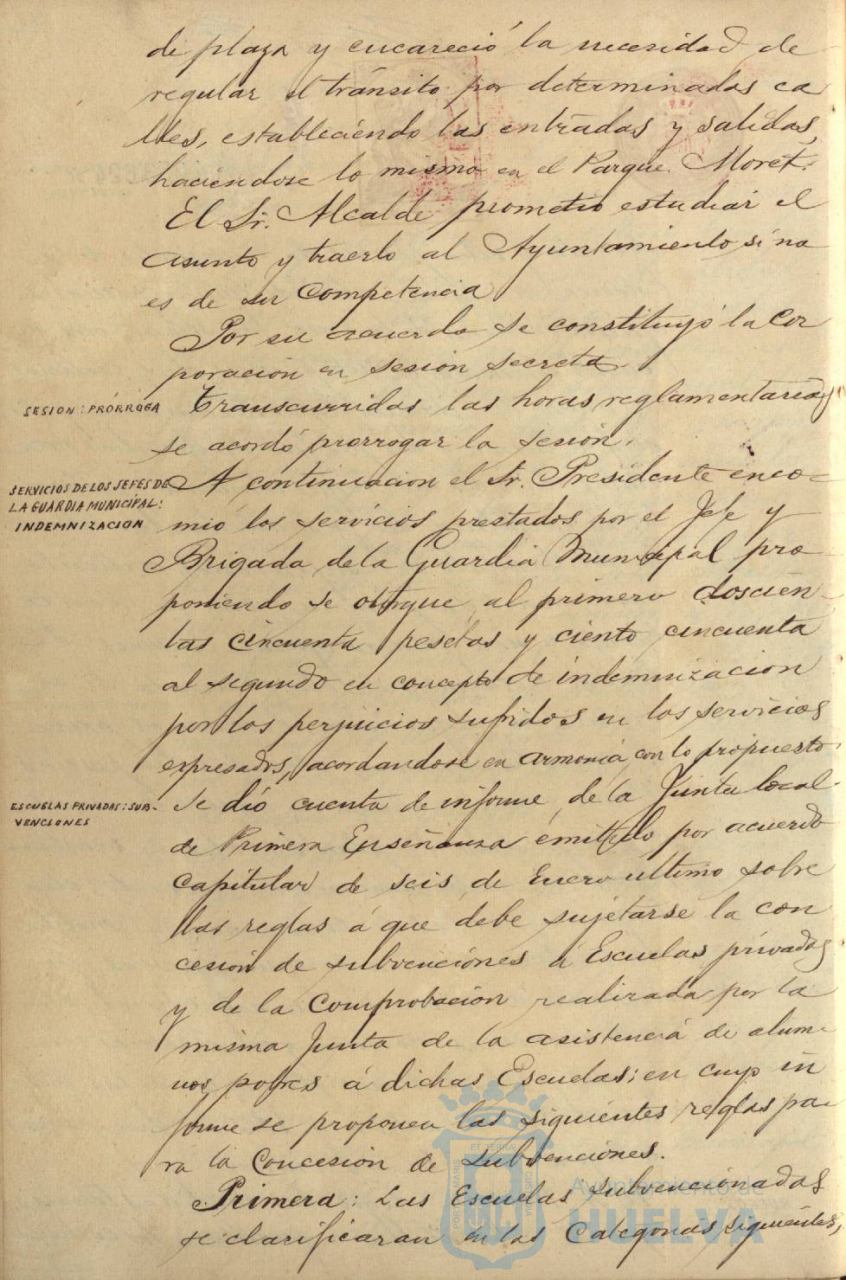 de plaza y encareció la necesidad de
regular el tránsito por determinadas ca
lles, estableciendo las entradas y salidas,
haciendose lo mismo en el Parque Moret.
El Sr. Alcalde prometió estudiar el
asunto y traerlo al Ayuntamiento si no
es de su competencia
Por su acuerdo se constituyó la Cor
poración en sesión secreta.
SESION: PRÓRROGA
Transcurridas las horas reglamentarias
se acordó prorrogar la sesión.
SERVICIOS DE LOS JEFES DE
LA GUARDIA MUNICIPAL:
INDEMNIZACION
A continuacion el Sr. Presidente enco-
mió los servicios prestados por el Jefe y
Brigada de la Guardia Municipal pro-
poniendo se otorgue al primero doscien-
tas cincuenta pesetas y ciento cincuenta
al segundo en concepto de indemnizacion
por los perjuicios sufridos en los servicios
expresados, acordandose en armonia con lo propuesto.
ESCUELAS PRIVADAS: SUB-
VENCIONES
Se dió cuenta de informe de la Junta local
de Primera Enseñanza emitido por acuerdo
Capitular de seis de Enero último sobre
las reglas á que debe sujetarse la con
cesión de subvenciones á Escuelas privadas
y de la Comprobacion realizada por la
misma Junta de la asistencia de alum-
nos pobres á dichas Escuelas; en cuyo in
forme se proponen las siguientes reglas pa-
ra la Concesion de subvenciones.
Primera: Las Escuelas subvencionadas
se clasificaran en las Categorias siguientes,
Ayuntamiento de
HUELVA